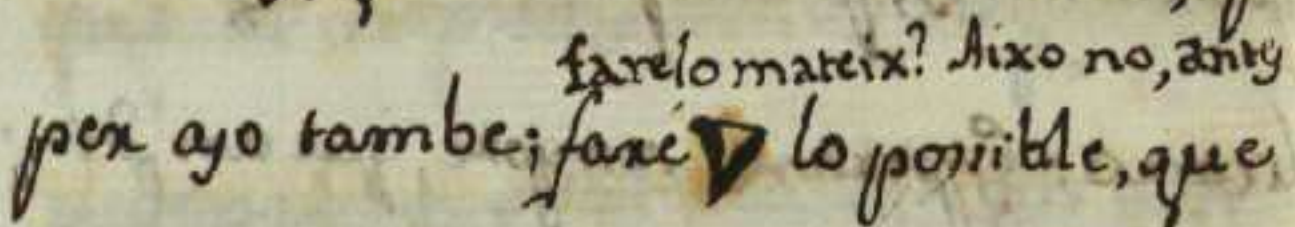 fare lo mateix? Aixo no, ants
per ayo tambe; faré lo possible, que